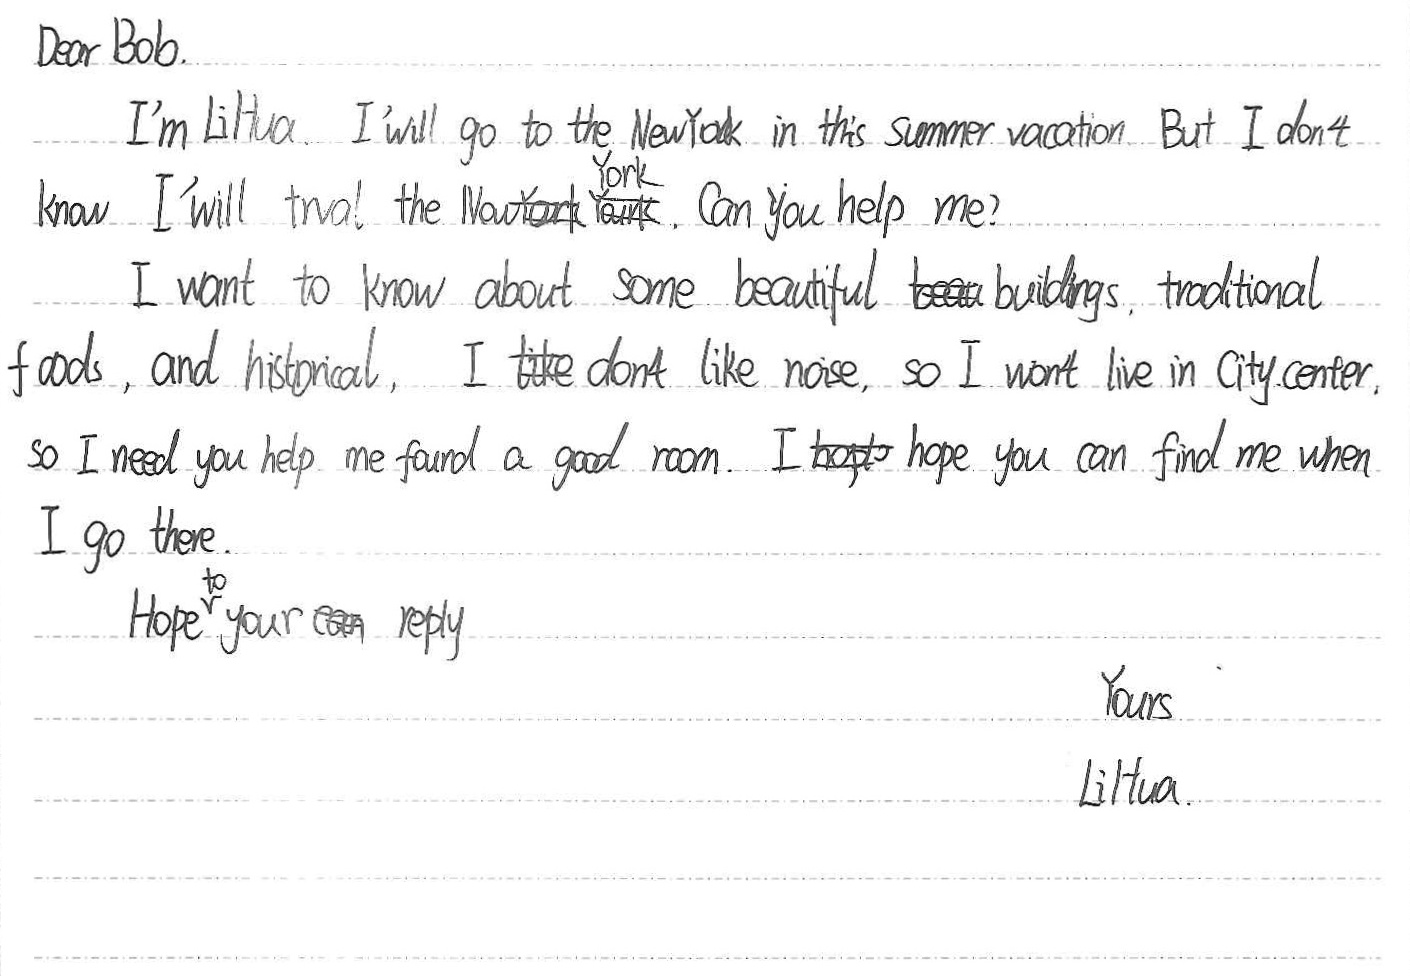 Dear Bob.
I'm LiHua. I'will go to the NewYork in this summer vacation. But I don't
know I'will trval the New York. Can you help me?
I want to know about some beautiful buildings, traditional
foods, and historical, I don't like noise, so I won't live in City center,
so I need you help me found a good room. I hope you can find me when
I go there.
Hope to your reply
Yours
LiHua.